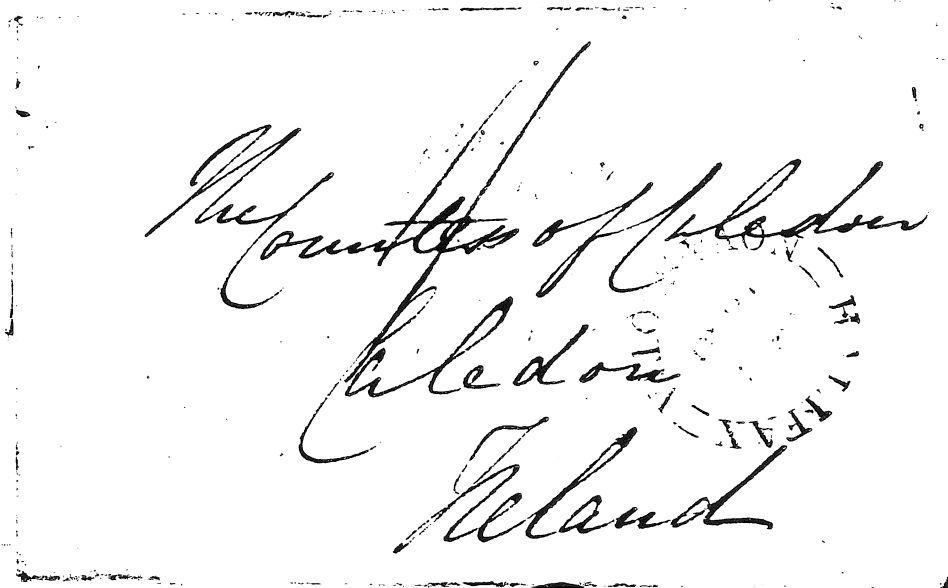 The
Countess of Caledon
Caledon
Ireland
HALIFAX